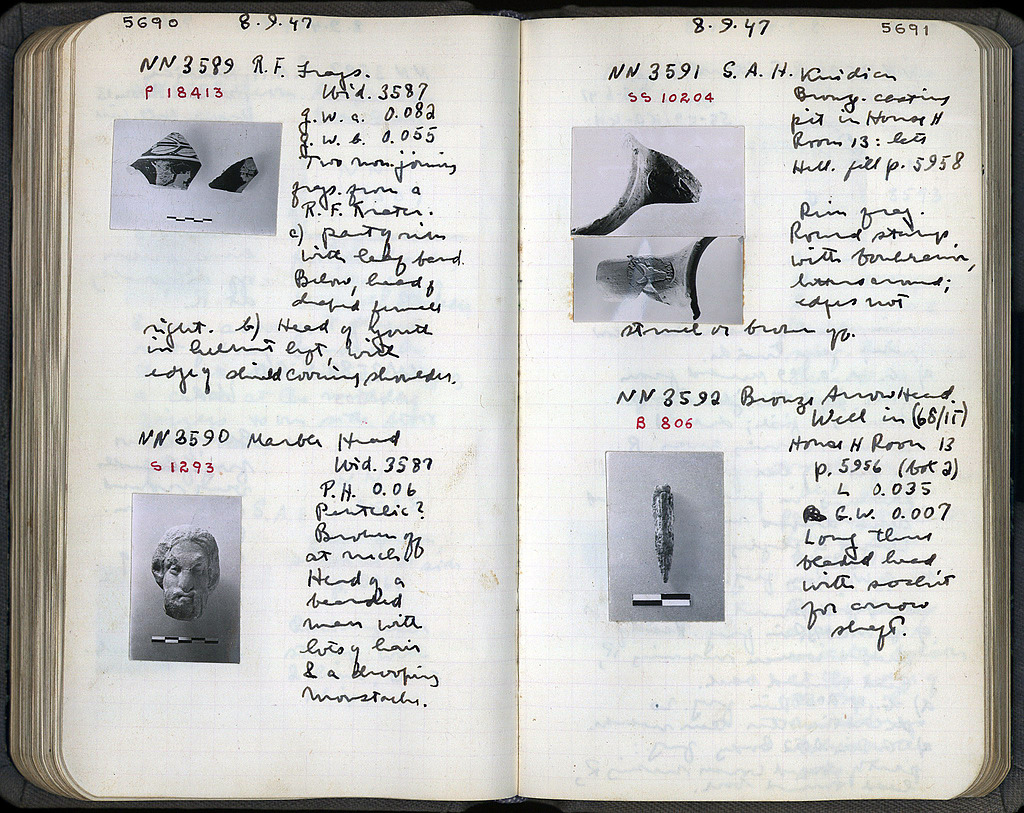 5690 8.9.47
NN 3589 R.F. Frags.
P 18413
Wid. 3587
g.w. a. 0.082
g.w. b. 0.055
Two non joining
frags. from a
R.F. Krater.
a) part of rim
with leaf band.
Below, head of
draped female
right. b) Head of youth
in helmet left, with
edge of shield covering shoulder.
NN 3590 Marble Head
S 1293
Wid. 3587
P.H. 0.06
Pentelic?
Broken off
at neck
Head of a
bearded
man with
lots of hair
& a drooping
moustache.
8.9.47 5691
NN 3591 S.A.H. Knidian
SS 10204
Bronze casting
pit in House H
Room 13: late
Hell. fill p. 5958
Rim frag.
Round stamp
with boukranion,
letters around;
edges not
struck or broken off.
NN 3592 Bronze Arrow Head.
B 806
Well in (68/ΙΕ)
House H Room 13
p. 5956 (bot 2)
L 0.035
G.W. 0.007
Long thin
bladed head
with socket
for arrow
shaft.